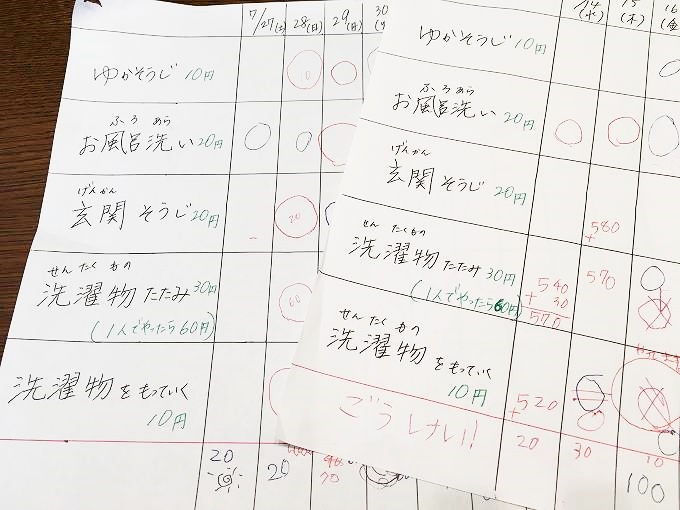 7/27(土) 28(日) 29(月) 30
ゆかそうじ 10円
10
ふろ あら
お風呂洗い 20円
げんかん
玄関 そうじ 20円
20
せん たく もの
洗濯物 たたみ 30円
(1人でやったら60円)
60
洗濯物をもっていく
10円
20
20
70
14(水) 15(木) 16(金
ゆかそうじ 10円
ふろ あら
お風呂洗い 20円
げんかん
玄関そうじ 20円
580
+
せん たく もの
洗濯物 たたみ 30円
(1人でやったら60円)
540
+ 30
570
570
せん たく もの
洗濯物をもっていく
10円
520
+
ごうけい!
20 30 10
100